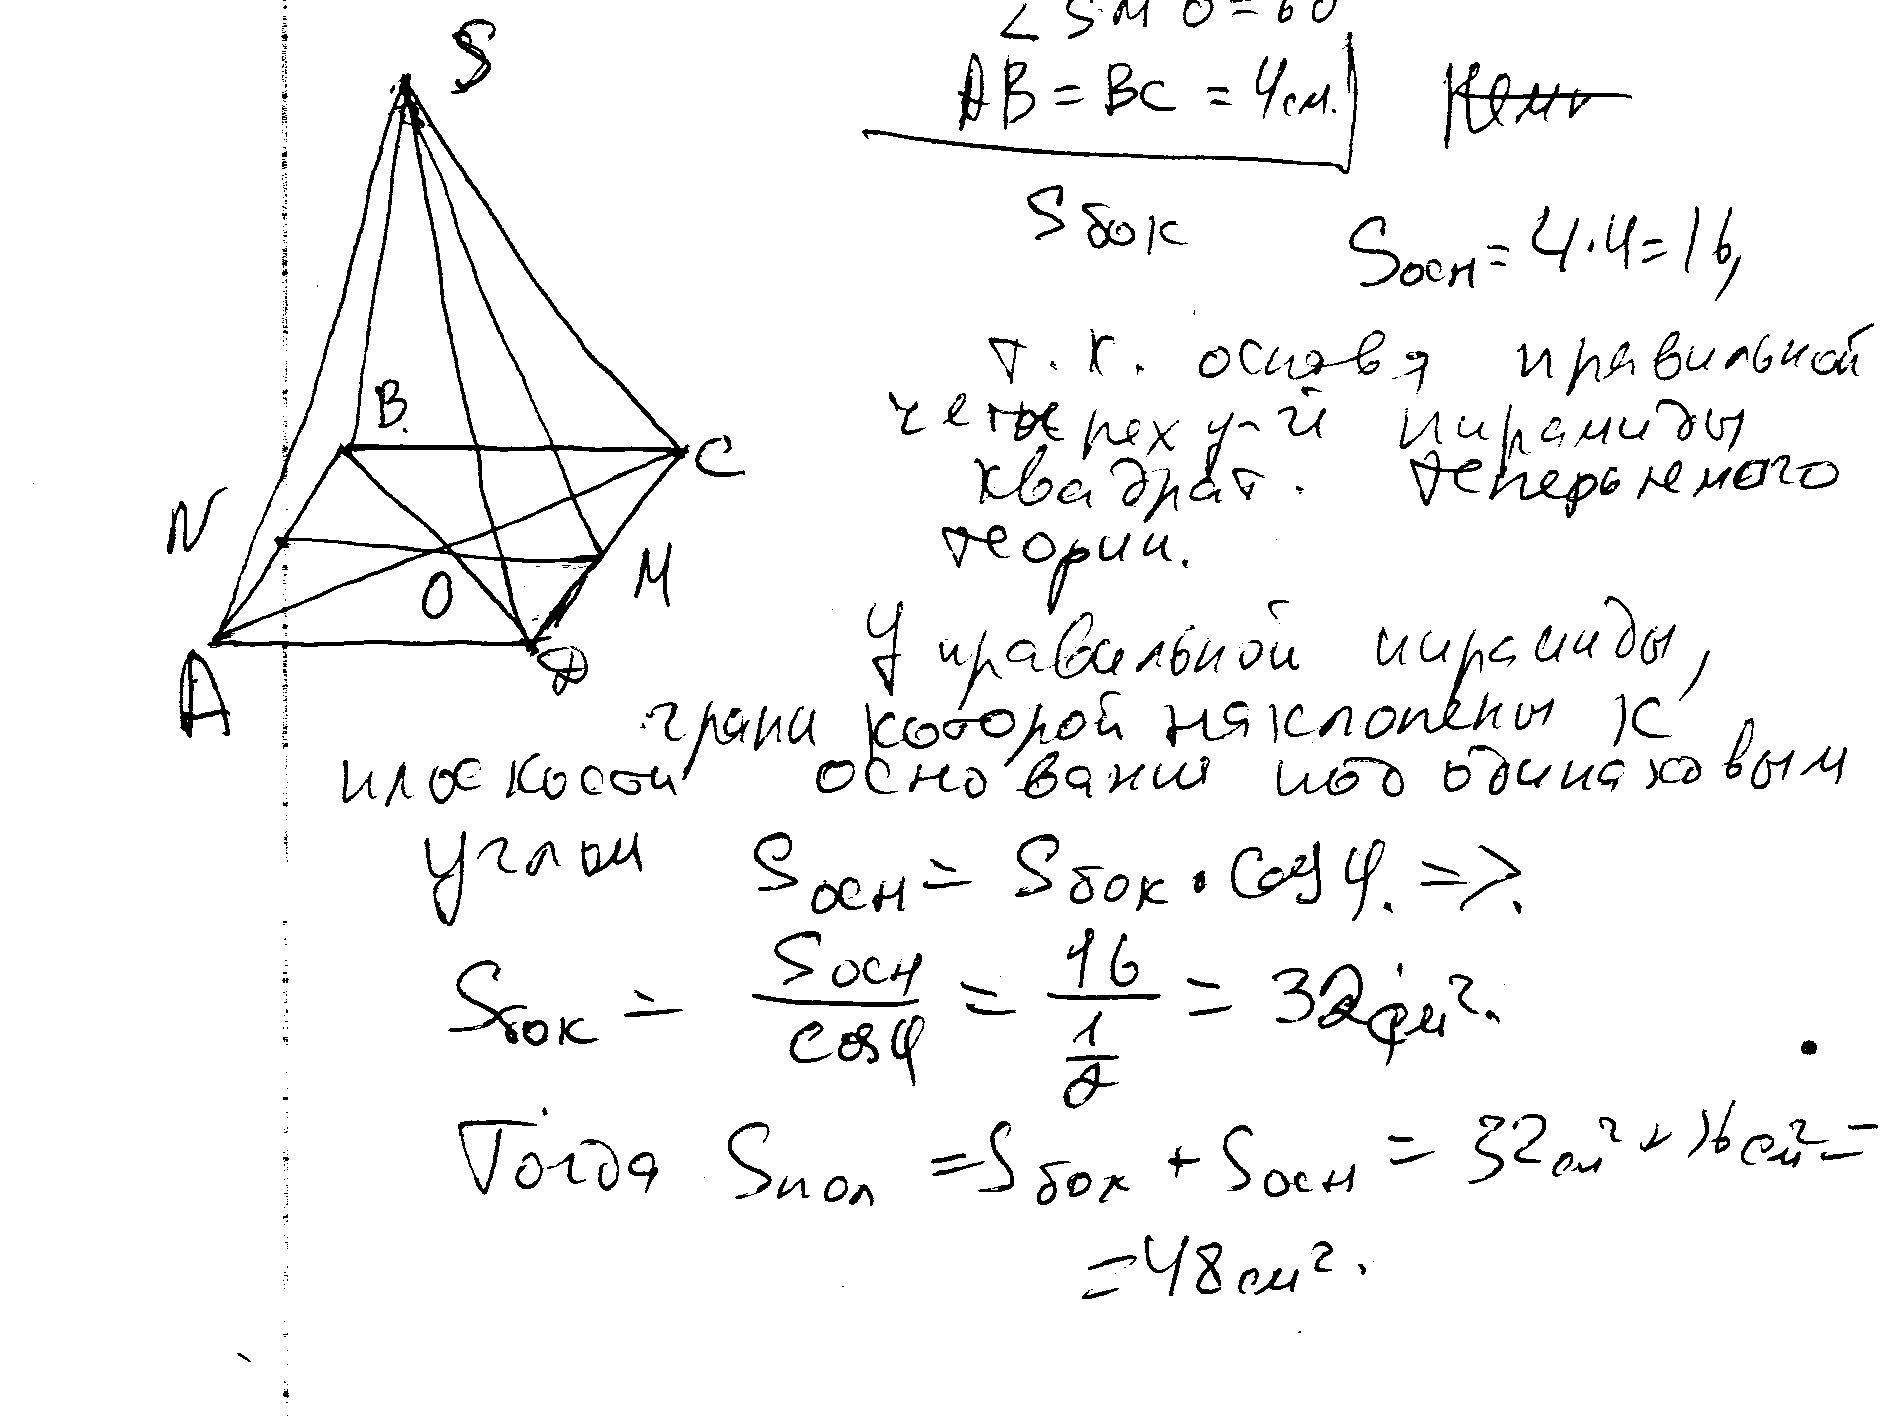 ∠SMO=60
AB = BC = 4см.
Sбок
Sосн = 4·4=16,
т.к. основа правильной
четырех у-й пирамиды
квадрат. Теперь немного
теории.
У правильной пирамиды,
грани которой наклонены к
плоскости основания под одинаковым
углом Sосн = Sбок · cosφ. =>.
Sбок = Sосн / cosφ = 16 / 1/2 = 32см².
Тогда Sпол = Sбок + Sосн = 32см² + 16см² =
= 48см².
S
B
C
N
O
M
A
D